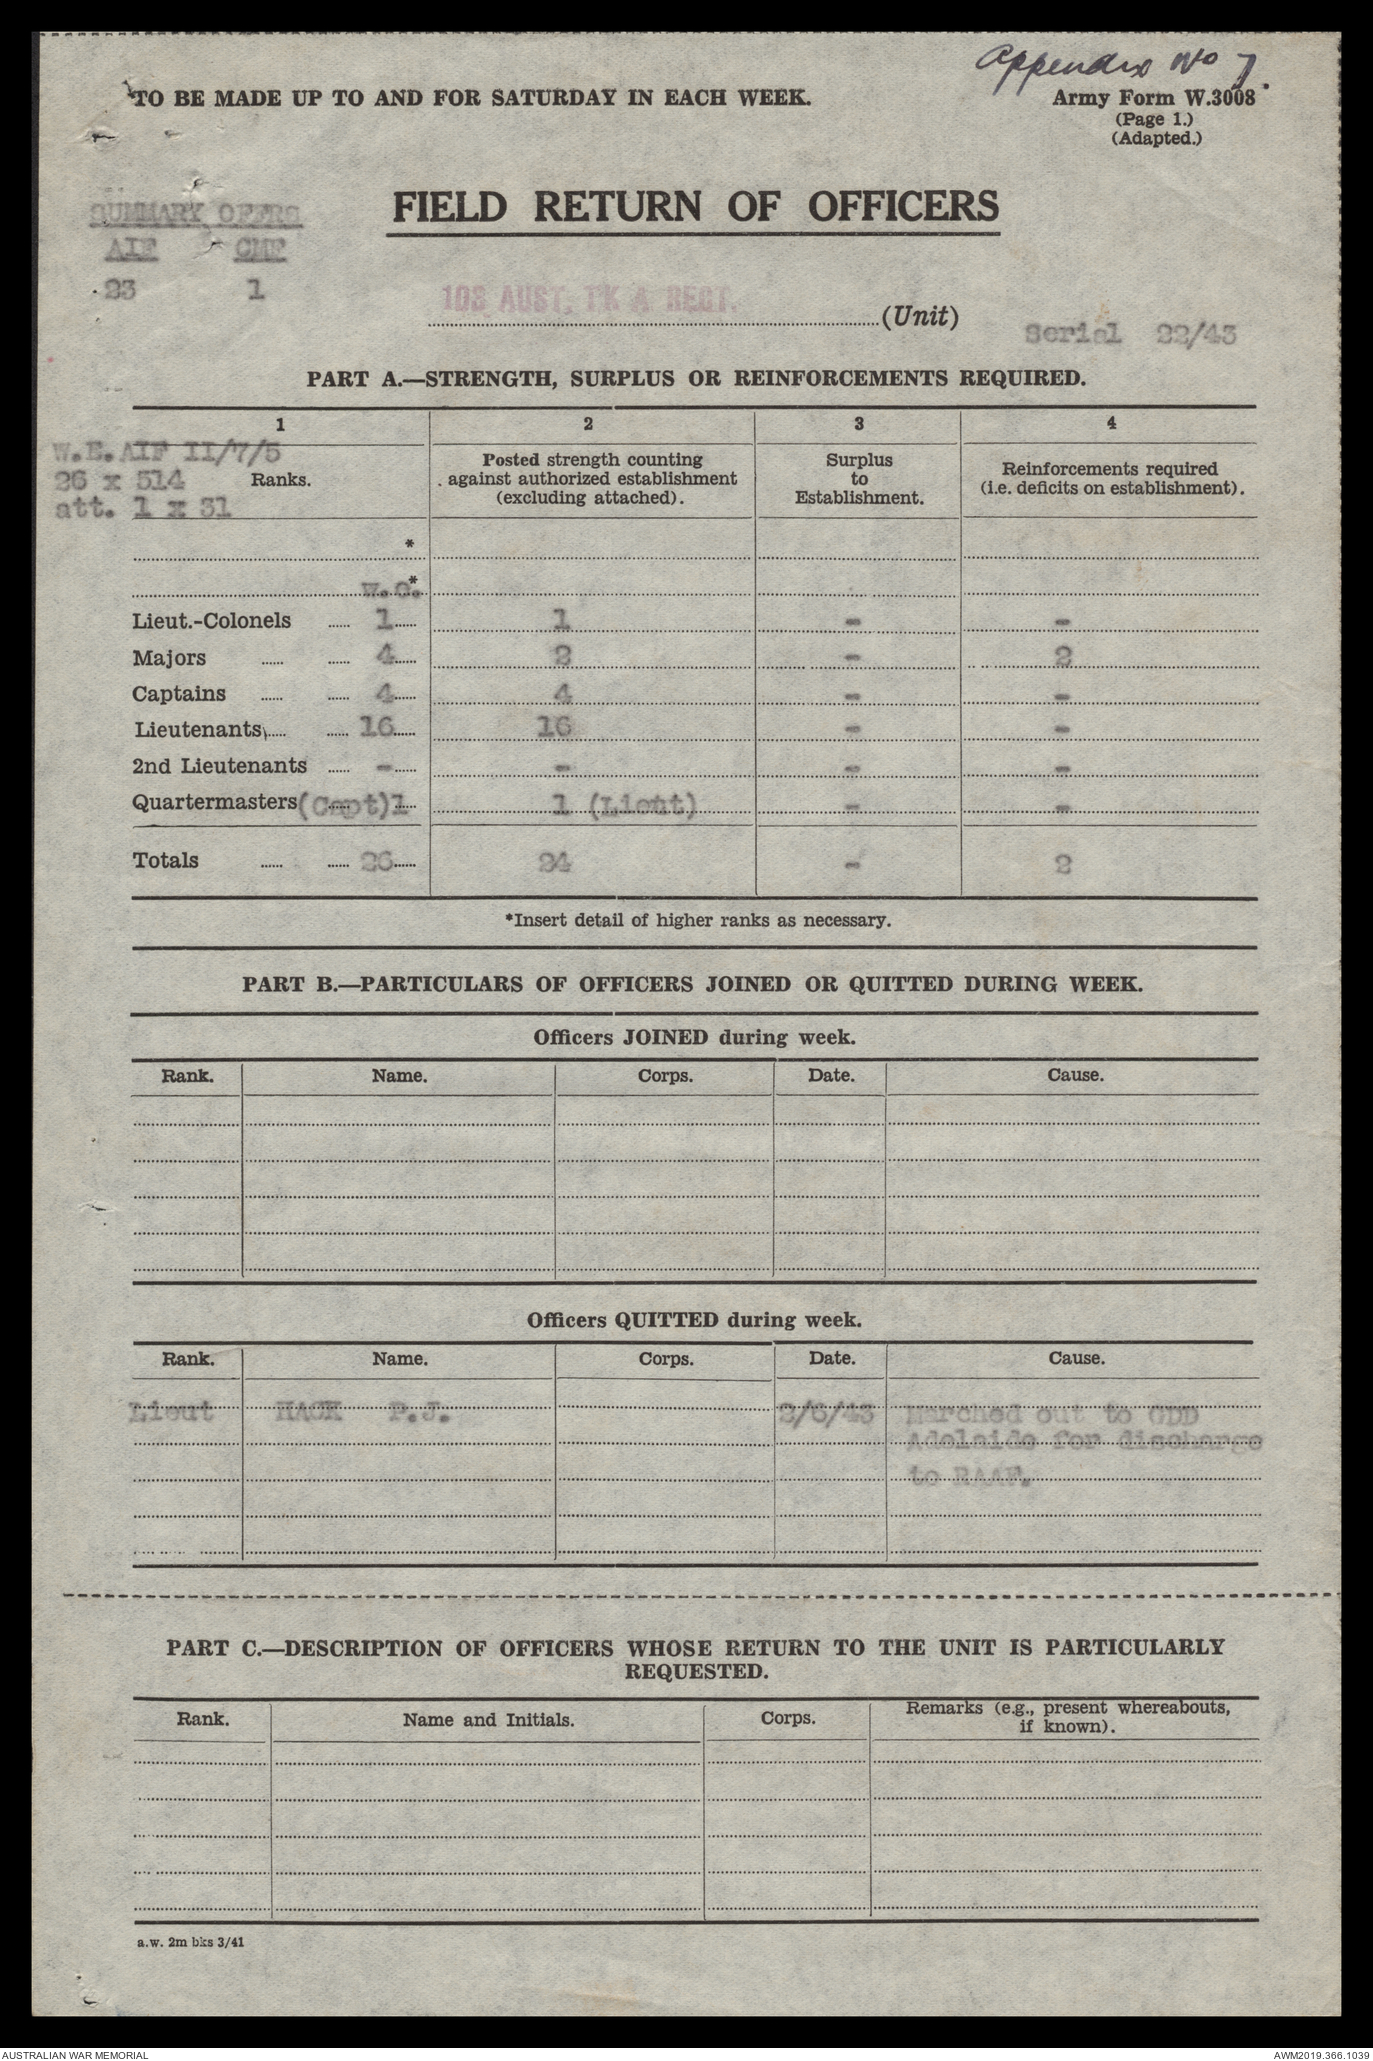 Appendix No 7.
TO BE MADE UP TO AND FOR SATURDAY IN EACH WEEK.
Army Form W.3008
(Page 1.)
(Adapted.)
SUMMARY OFFRS
AIF CMF
23 1
FIELD RETURN OF OFFICERS
103 AUST, TK A REGT. (Unit)
Serial 22/43
PART A.—STRENGTH, SURPLUS OR REINFORCEMENTS REQUIRED.
1 2 3 4
W.E.AIF II/7/5
26 x 514
att. 1 x 31
Ranks.
Posted strength counting
against authorized establishment
(excluding attached).
Surplus
to
Establishment.
Reinforcements required
(i.e. deficits on establishment).
*
W.C.*
Lieut.-Colonels 1 1 - -
Majors 4 2 - 2
Captains 4 4 - -
Lieutenants 16 16 - -
2nd Lieutenants - - - -
Quartermasters (Capt)1 1 (Lieut) - -
Totals 26 24 - 2
*Insert detail of higher ranks as necessary.
PART B.—PARTICULARS OF OFFICERS JOINED OR QUITTED DURING WEEK.
Officers JOINED during week.
Rank. Name. Corps. Date. Cause.
Officers QUITTED during week.
Rank. Name. Corps. Date. Cause.
Lieut HACK P.J. 2/6/43 Marched out to GDD
Adelaide for discharge
to RAAF.
PART C.—DESCRIPTION OF OFFICERS WHOSE RETURN TO THE UNIT IS PARTICULARLY
REQUESTED.
Rank. Name and Initials. Corps. Remarks (e.g., present whereabouts,
if known).
a.w. 2m bks 3/41
AUSTRALIAN WAR MEMORIAL
AWM2019.366.1039